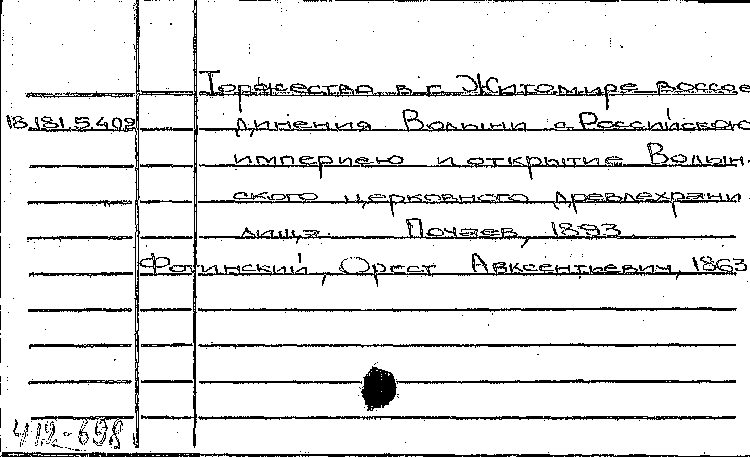 Торжество в г. Житомире воссое
18.181.5.408 динения Волыни с Российскою
империею и открытие Волын-
ского церковного древлехрани
лища. Почаев, 1893.
Фотинский, Орест Авксентьевич, 1863
412-698